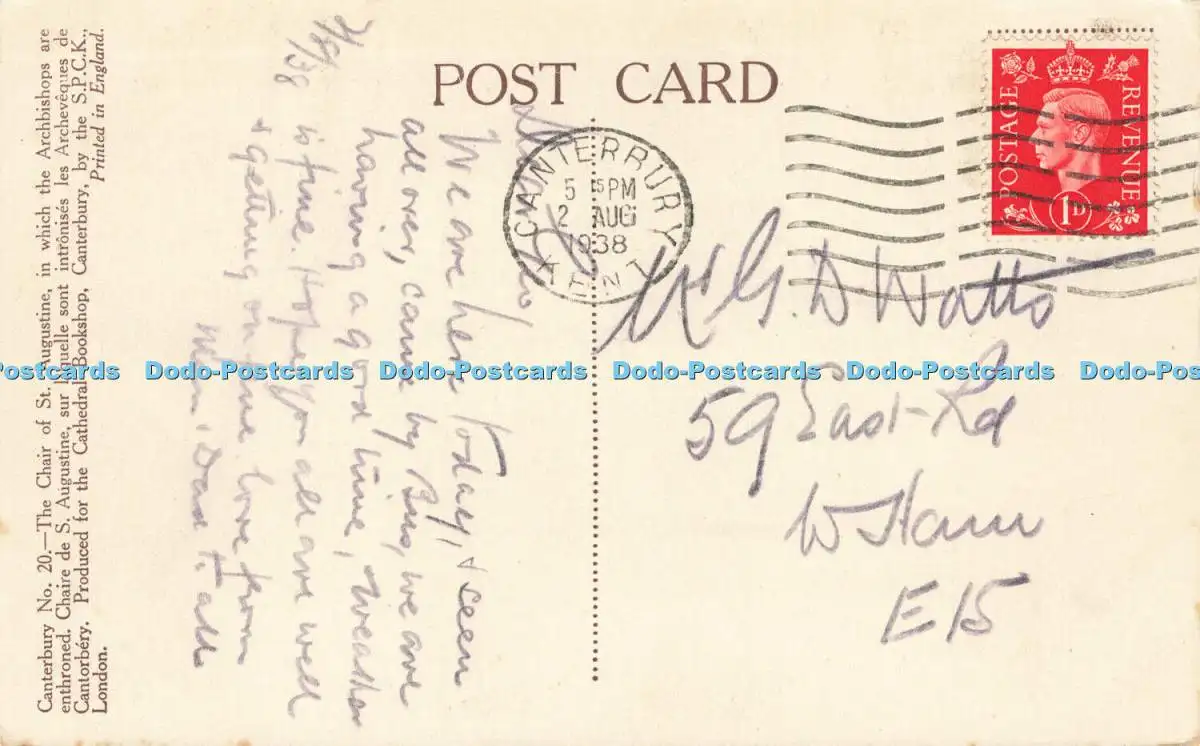 POST CARD
Canterbury No. 20.—The Chair of St. Augustine, in which the Archbishops are
enthroned. Chaire de S. Augustine, sur laquelle sont intrônisés les Archevêques de
Cantorbéry. Produced for the Cathedral Bookshop, Canterbury, by the S.P.C.K.,
London. Printed in England.
2/8/38
We are here Today, & seen
all over, came by Bus, we are
having a good time, Weather
is fine. Hope you all are well
& getting on fine love from
Mum, Dad & all
CANTERBURY
5 15 PM
2 AUG
1938
KENT
POSTAGE REVENUE
1D
G D Watts
59 East Rd
W Ham
E 15
Dodo-Postcards Dodo-Postcards Dodo-Postcards Dodo-Postcards